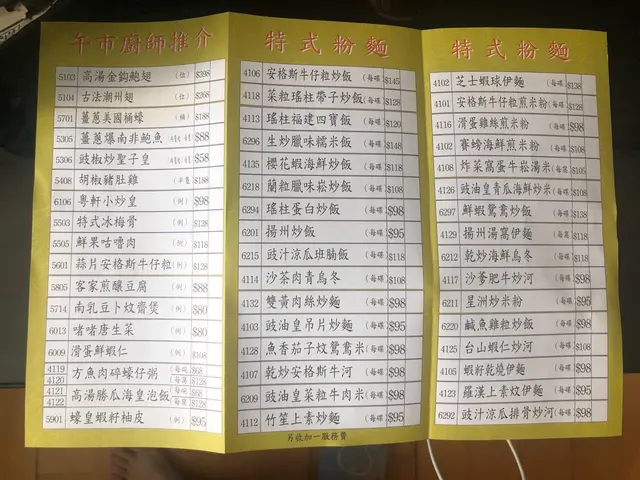 午市廚師推介
5103 高湯金鈎鮑翅 (位) $398
5104 古法潮州翅 (位) $268
5701 薑蔥美國桶蠔 (桶) $188
5305 薑蔥爆南非鮑魚 $88
5306 豉椒炒聖子皇 $58
5408 胡椒豬肚雞 (半隻) $188
6106 粵軒小炒皇 (例) $98
5503 特式冰梅骨 (例) $128
5505 鮮果咕嚕肉 (例) $118
5601 蒜片安格斯牛仔粒 (例) $128
5805 客家煎釀豆腐 (例) $88
5714 南乳豆卜炆齋煲 (例) $80
6013 啫啫唐生菜 (例) $80
6009 滑蛋鮮蝦仁 (例) $108
4119 方魚肉碎蠔仔粥 (每碗) $68
4120 (每窩) $128
4121 高湯勝瓜海皇泡飯 (每碗) $68
4122 (每窩) $128
5901 蠔皇蝦籽柚皮 (例) $95
特式粉麵
4106 安格斯牛仔粒炒飯 (每碟) $145
4118 菜粒瑤柱帶子炒飯 (每碟) $128
4113 瑤柱福建四寶飯 (每碟) $120
6296 生炒臘味糯米飯 (每碟) $148
4135 櫻花蝦海鮮炒飯 (每碟) $118
6218 蘭粒臘味崧炒飯 (每碟) $108
6294 瑤柱蛋白炒飯 (每碟) $98
6201 揚州炒飯 (每碟) $95
6215 豉汁涼瓜班腩飯 (每碟) $118
4114 沙茶肉青烏冬 (每碟) $108
4132 雙黃肉絲炒麵 (每碟) $98
4103 豉油皇吊片炒麵 (每碟) $98
4128 魚香茄子炆鴛鴦米 (每碟) $98
4107 乾炒安格斯牛河 (每碟) $98
6209 豉油皇菜粒牛肉米 (每碟) $98
4112 竹笙上素炒麵 (每碟) $95
另收加一服務費
特式粉麵
4102 芝士蝦球伊麵 (每碟) $138
4101 安格斯牛仔粒煎米粉 (每碟) $128
4116 滑蛋雞絲煎米粉 (每碟) $98
4102 賽螃海鮮煎米粉 (每碟) $108
4108 炸菜窩蛋牛崧湯米 (每窩) $105
4126 豉油皇青瓜海鮮炒米 (每碟) $108
6297 鮮蝦鴛鴦炒飯 (每碟) $138
4129 揚州湯窩伊麵 (每窩) $118
6212 乾炒海鮮烏冬 (每碟) $118
4117 沙爹肥牛炒河 (每碟) $98
6211 星洲炒米粉 (每碟) $95
6220 鹹魚雞粒炒飯 (每碟) $98
4125 台山蝦仁炒河 (每碟) $98
4105 蝦籽乾燒伊麵 (每碟) $98
4123 羅漢上素炆伊麵 (每碟) $95
6292 豉汁涼瓜排骨炒河 (每碟) $98